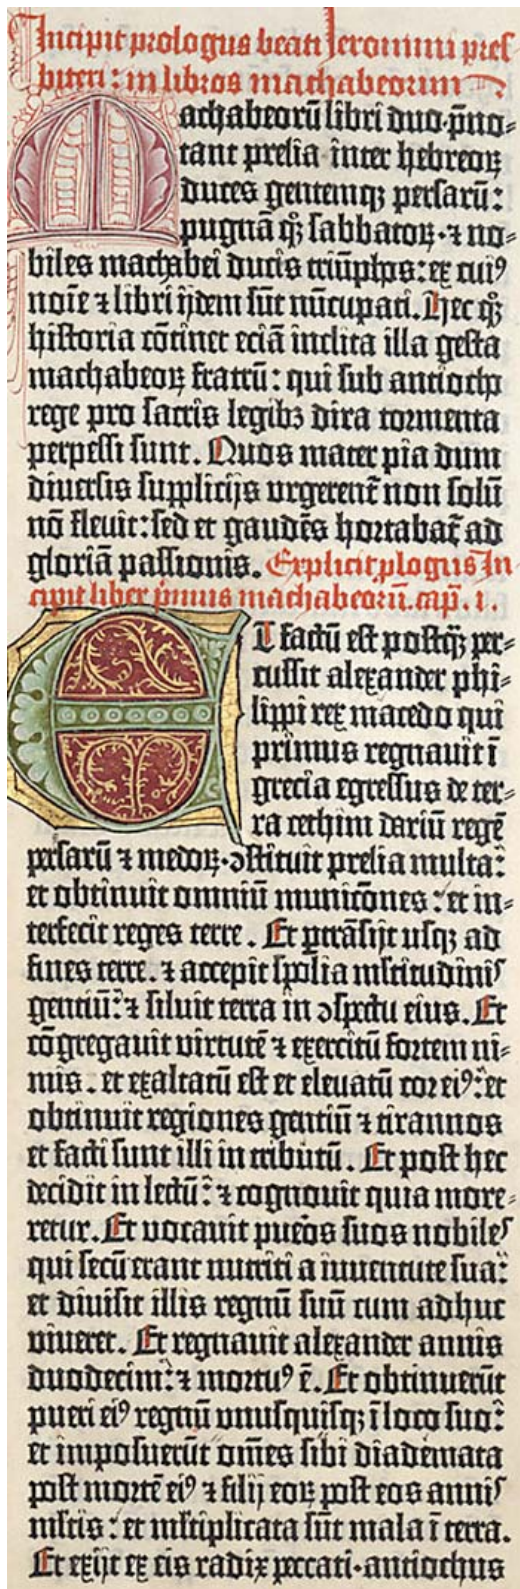 Incipit prologus beati Jeronimi pres
biteri : in libros machabeorum
Machabeorū libri duo p̄no⸗
tant prelia inter hebreoꝝ
duces gentemqꝫ persarū :
pugnā qꝫ̄ sabbatoꝝ · ⁊ no⸗
biles machabei ducis triūphos : ex cuiꝰ
noīe ⁊ libri ijdem sūt nūcupati . Hec qꝫ̄
historia cōtinet eciā inclita illa gesta
machabeoꝝ fratrū : qui sub antiocho
rege pro sacris legibꝫ dira tormenta
perpessi sunt . Quos mater pia dum
diuersis supplicijs vrgerent̄ non solū
nō fleuit : sed et gaudēs hortabat̄ ad
gloriā passionis . Explicit ꝓlogus In
cipit liber p̄mus machabeorū . cap . i .
Et factū est postqꝫ̄ per⸗
cussit alexander phi⸗
lippi rex macedo qui
primus regnauit ī
grecia egressus de ter⸗
ra cethim dariū regē
persarū ⁊ medoꝝ · ↄstituit prelia multa :
et obtinuit omniū municōnes : et in⸗
terfecit reges terre . Et ꝑtrāsijt usqꝫ ad
fines terre . ⁊ accepit spolia ml̄titudinis
gentiū : ⁊ siluit terra in ↄspectu eius . Et
cōgregauit virtutē ⁊ exercitū fortem ni⸗
mis . et exaltatū est et eleuatū cor eiꝰ : et
obtinuit regiones gentiū ⁊ tirannos
et facti sunt illi in tributū . Et post hec
decidit in lectū : ⁊ cognouit quia more⸗
retur . Et vocauit pueōs suos nobiles
qui secū erant nutriti a iuuentute sua :
et diuisit illis regnū suū cum adhuc
viueret . Et regnauit alexander annis
duodecim : ⁊ mortuꝰ ē . Et obtinuerūt
pueri eiꝰ regnū vnusquisqꝫ ī loco suo :
et imposuerūt om̄es sibi diademata
post mortē eiꝰ ⁊ filij eoꝝ post eos annis
ml̄tis : et ml̄tiplicata sūt mala ī terra .
Et exijt ex eis radix peccati · antiochus